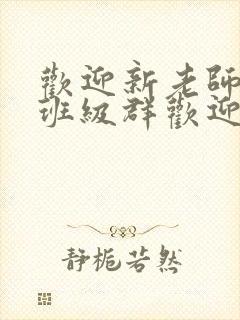 歡迎新老師
班級群歡迎
静栀若然